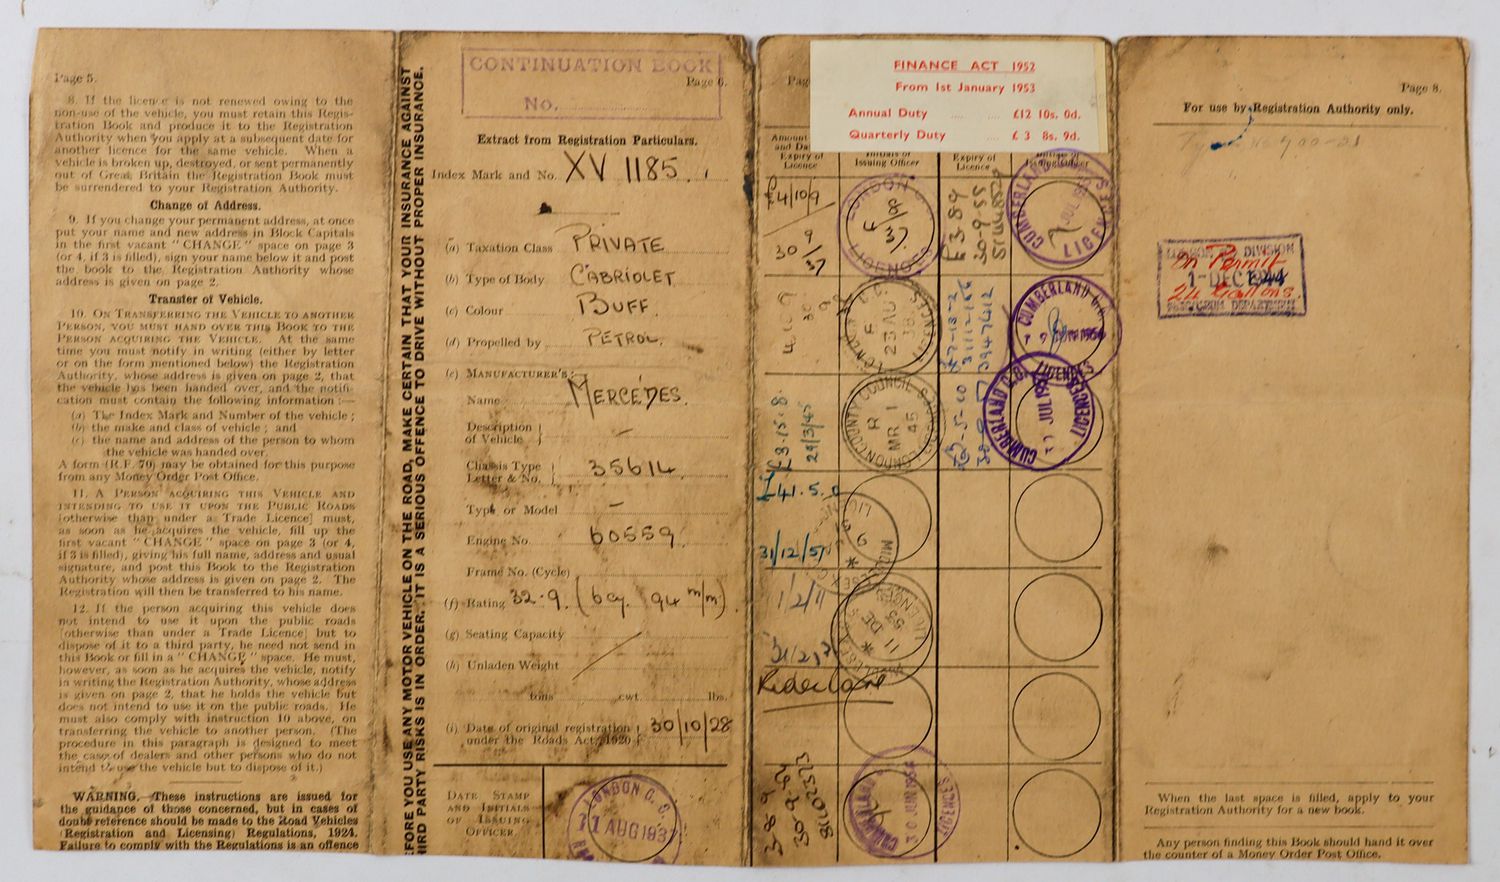 Page 5.
8. If the licence is not renewed owing to the
non-use of the vehicle, you must retain this Regis-
tration Book and produce it to the Registration
Authority when you apply at a subsequent date for
another licence for the same vehicle. When a
vehicle is broken up, destroyed, or sent permanently
out of Great Britain the Registration Book must
be surrendered to your Registration Authority.
Change of Address.
9. If you change your permanent address, at once
put your name and new address in Block Capitals
in the first vacant "CHANGE" space on page 3
(or 4, if 3 is filled), sign your name below it and post
the book to the Registration Authority whose
address is given on page 2.
Transfer of Vehicle.
10. ON TRANSFERRING THE VEHICLE TO ANOTHER
PERSON, YOU MUST HAND OVER THIS BOOK TO THE
PERSON ACQUIRING THE VEHICLE. At the same
time you must notify in writing (either by letter
or on the form mentioned below) the Registration
Authority, whose address is given on page 2, that
the vehicle has been handed over, and the notifi-
cation must contain the following information :—
(a) The Index Mark and Number of the vehicle ;
(b) the make and class of vehicle ; and
(c) the name and address of the person to whom
the vehicle was handed over.
A form (R.F. 70) may be obtained for this purpose
from any Money Order Post Office.
11. A PERSON ACQUIRING THIS VEHICLE AND
INTENDING TO USE IT UPON THE PUBLIC ROADS
[otherwise than under a Trade Licence] must,
as soon as he acquires the vehicle, fill up the
first vacant "CHANGE" space on page 3 (or 4,
if 3 is filled), giving his full name, address and usual
signature, and post this Book to the Registration
Authority whose address is given on page 2. The
Registration will then be transferred to his name.
12. If the person acquiring this vehicle does
not intend to use it upon the public roads
[otherwise than under a Trade Licence] but to
dispose of it to a third party, he need not send in
this Book or fill in a "CHANGE" space. He must,
however, as soon as he acquires the vehicle, notify
in writing the Registration Authority, whose address
is given on page 2, that he holds the vehicle but
does not intend to use it on the public roads. He
must also comply with instruction 10 above, on
transferring the vehicle to another person. (The
procedure in this paragraph is designed to meet
the case of dealers and other persons who do not
intend to use the vehicle but to dispose of it.)
WARNING. These instructions are issued for
the guidance of those concerned, but in cases of
doubt reference should be made to the Road Vehicles
(Registration and Licensing) Regulations, 1924.
Failure to comply with the Regulations is an offence
BEFORE YOU USE ANY MOTOR VEHICLE ON THE ROAD, MAKE CERTAIN THAT YOUR INSURANCE AGAINST
THIRD PARTY RISKS IS IN ORDER. IT IS A SERIOUS OFFENCE TO DRIVE WITHOUT PROPER INSURANCE.
CONTINUATION BOOK
No.
Page 6.
Extract from Registration Particulars.
Index Mark and No. XV 1185.
(a) Taxation Class PRIVATE
(b) Type of Body CABRIOLET
(c) Colour BUFF.
(d) Propelled by PETROL.
(e) MANUFACTURER'S:
Name MERCÉDES.
Description of Vehicle } —
Chassis Type Letter & No. } 35614
Type or Model —
Engine No. 60559.
Frame No. (Cycle)
(f) Rating 32.9. (6 cy. 94 m/m)
(g) Seating Capacity
(h) Unladen Weight
tons cwt. lbs.
(i) Date of original registration under the Roads Act, 1920 } 30/10/28
DATE STAMP
AND INITIALS
OF ISSUING
OFFICER.
LONDON C.C.
11 AUG 1937
Pag
FINANCE ACT 1952
From 1st January 1953
Annual Duty £12 10s. 0d.
Quarterly Duty £ 3 8s. 9d.
Amount
and Da
Expiry of
Licence
Initials of
Issuing Officer
Expiry of
Licence
Initials of
Issuing Officer
£4/10/9
30 9/37
LONDON C.C.
LICENCES
£3-8-9
30-9-55
CUMBERLAND
LICEN
LONDON C.C.
23 AU
38
£7-13-2
31/12/56
3947412
CUMBERLAND C.C.
LICENCES
£3-15-8.
29/3/45
LONDON COUNTY COUNCIL
R
MR 1
45
£3-5-00
CUMBERLAND C.C.
JUL 195
LICENCES
£4 1. 5. 0
31/12/51
MIDDLESEX C.C.
1/2/11
11
DE
53
3-8-9
30-9-54
CUMBERLAND
30 JUN 1954
LICENCES
Page 8.
For use by Registration Authority only.
LONDON DIVISION
1-DEC 1944
PETROLEUM DEPARTMENT
on Permit
24 Gallons.
When the last space is filled, apply to your
Registration Authority for a new book.
Any person finding this Book should hand it over
the counter of a Money Order Post Office.